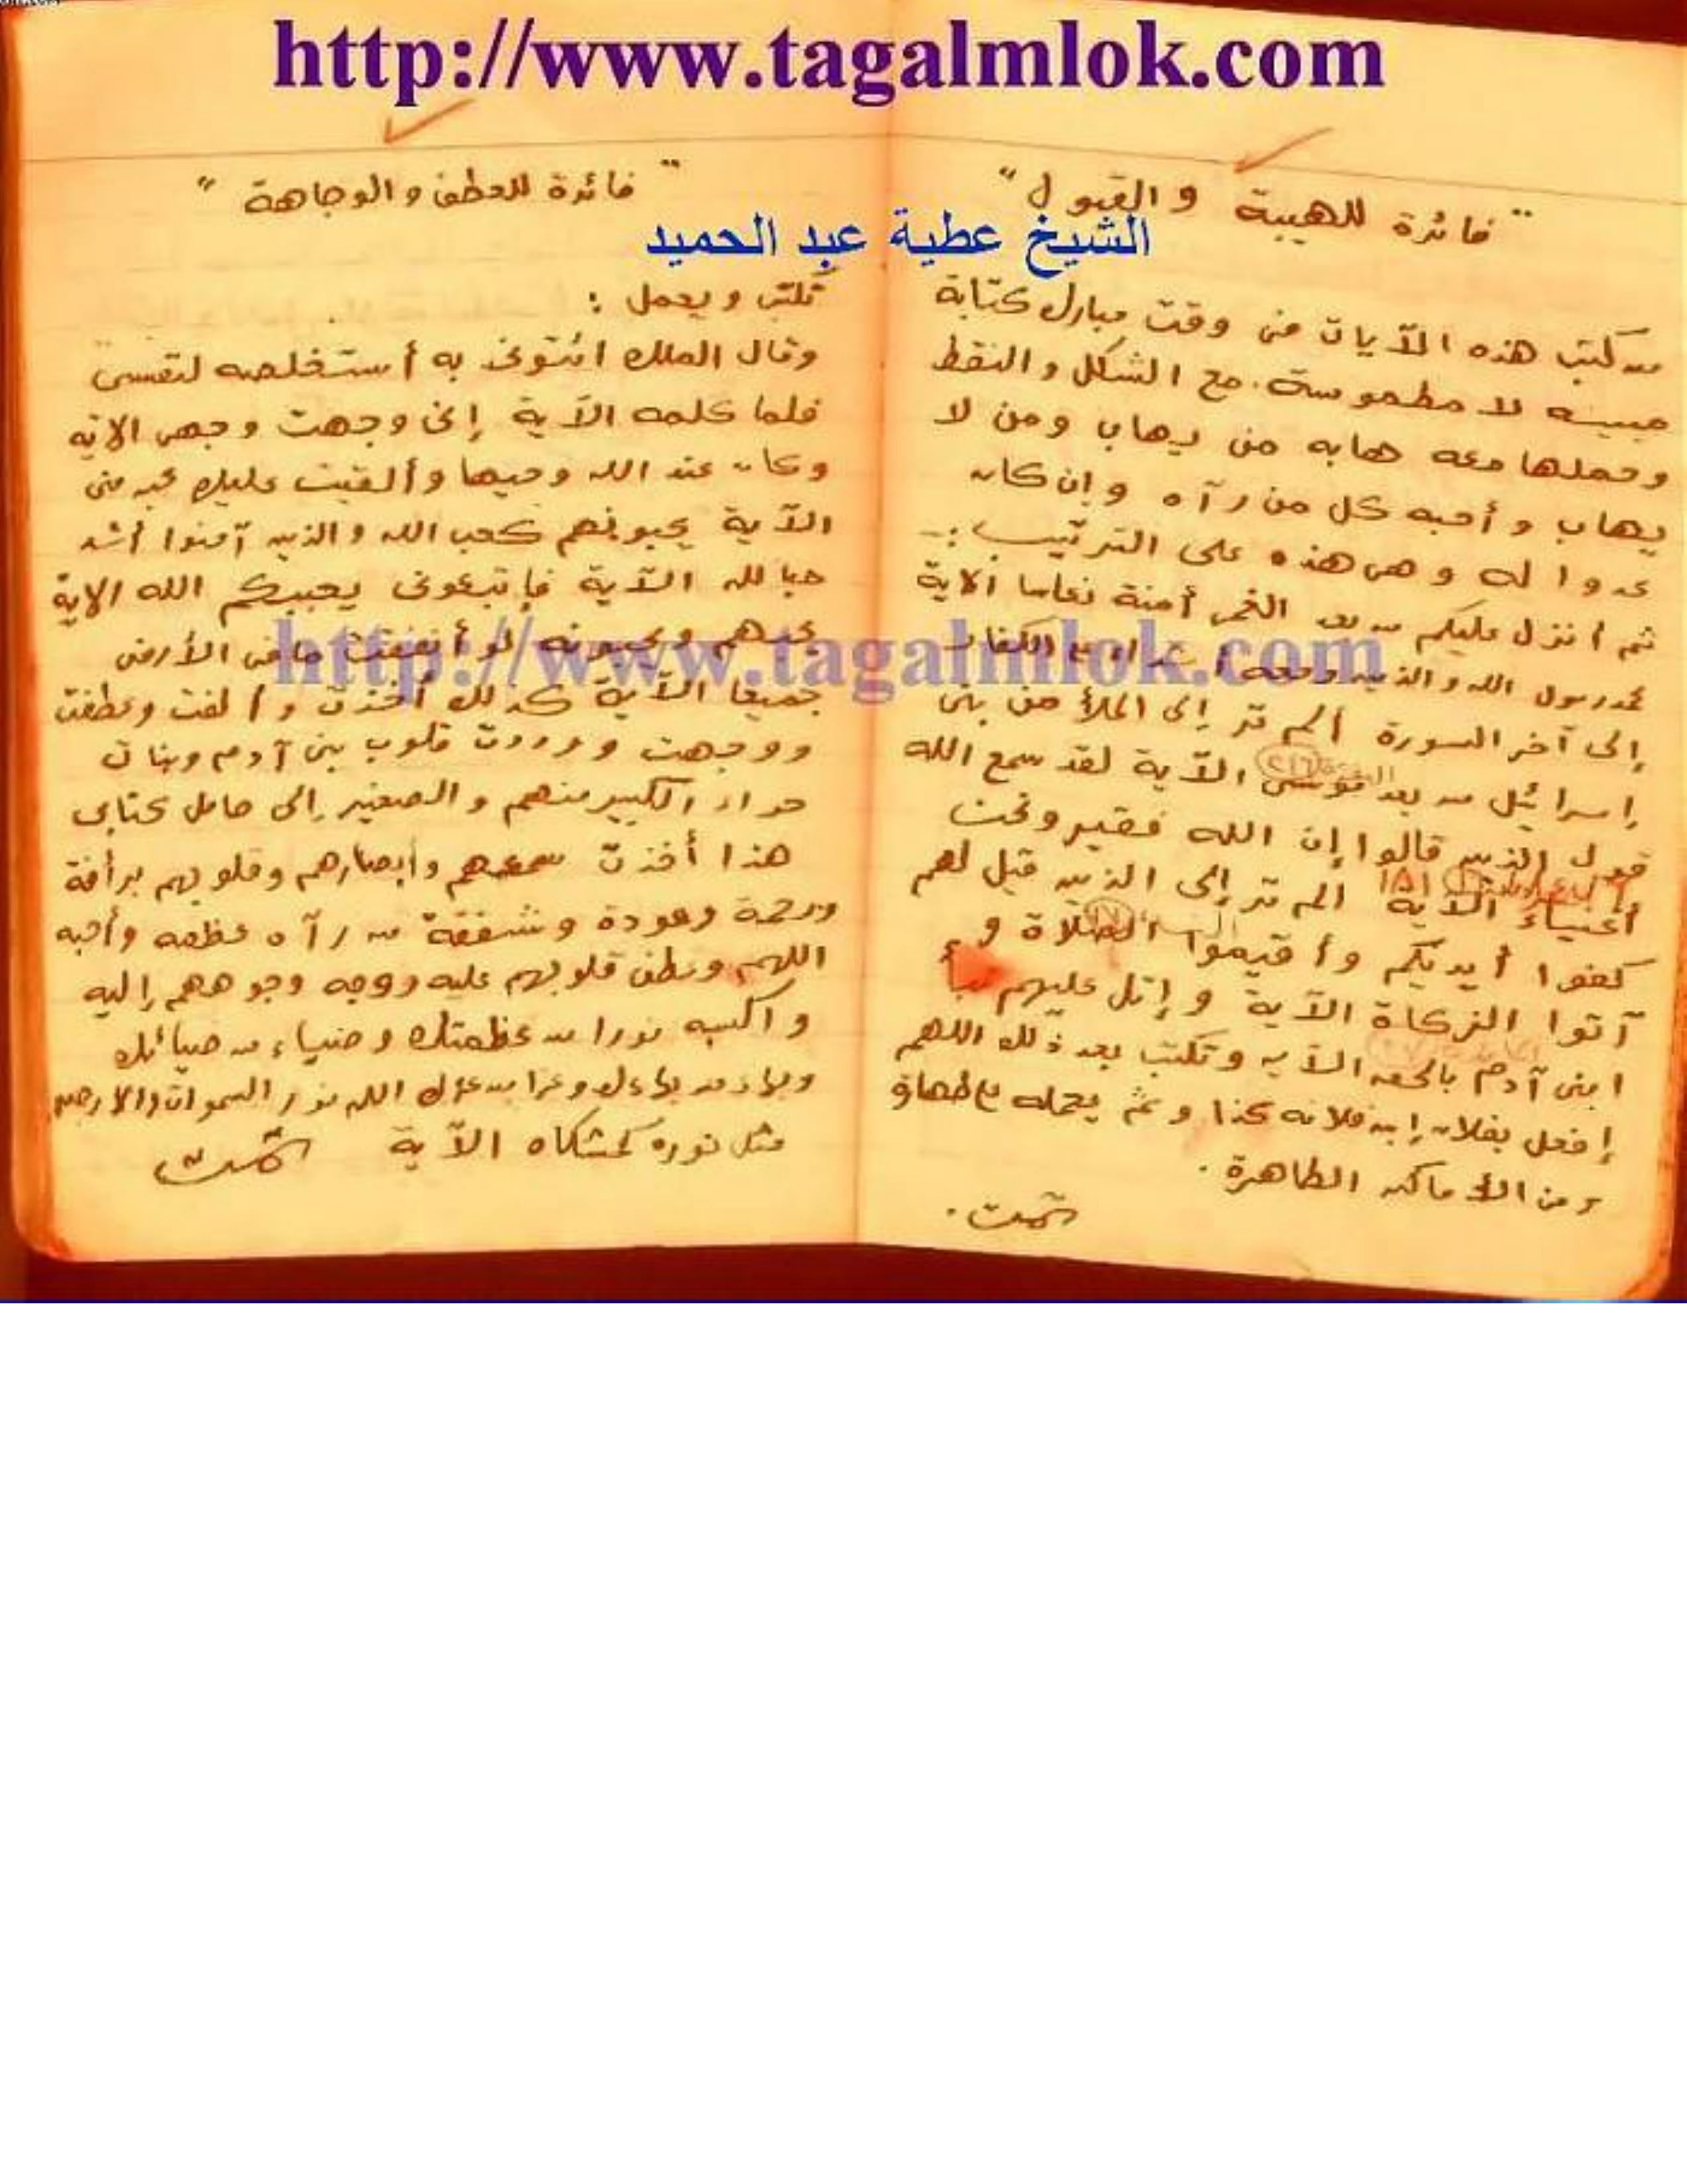 http://www.tagalmlok.com
" فائدة للهيبة والقبول "
الشيخ عطية عبد الحميد
من كتب هذه الآيات فى وقت مبارك كتابة
مبينه لا مطموسة مع الشكل والنقط
وحملها معه هابه من يهاب ومن لا
يهاب وأحبه كل من رآه وإن كان
عدوا له وهى هذه على الترتيب :-
ثم أنزل عليكم من بعد الغم أمنة نعاسا الاية
محمد رسول الله والذين معه أشداء على الكفار
إلى آخر السورة ألم تر إلى الملأ من بنى
إسرائيل من بعد موسى الآية لقد سمع الله
قول الذين قالوا إن الله فقير ونحن
أغنياء الآية ١٨١ الم تر إلى الذين قيل لهم
كفوا أيديكم وأقيموا الصلاة و
آتوا الزكاة الآية وإتل عليهم نبأ
ابنى آدم بالحق الآيه وتكتب بعد ذلك اللهم
إفعل بفلان إبن فلانه كذا وثم يحمله مع طهارة
ومن الأماكن الطاهرة .
تمت .
" فائدة للعطف والوجاهة "
تكتب ويحمل :
وقال الملك ائتونى به أستخلصه لنفسى
فلما كلمه الآية إنى وجهت وجهى الاية
وكان عند الله وجيها وألقيت عليك محبه منى
الآية يحبونهم كحب الله والذين آمنوا أشد
حبا لله الآية فاتبعونى يحببكم الله الاية
يحبهم ويحبونه لو أنفقت ما فى الأرض
http://www.tagalmlok.com
جميعا الآية كذلك أخذت وألفت وعطفت
ووجهت ورددت قلوب بنى آدم وبنات
حواء الكبير منهم والصغير إلى حامل كتابى
هذا أخذت سمعهم وأبصارهم وقلوبهم برأفة
ورحمة ومودة وشفقة من رآه عظمه وأحبه
اللهم وعطف قلوبهم عليه ووجه وجوههم إليه
واكسبه نورا من عظمتك وضياء من ضيائك
وبهاء من بهاءك وعزا من عزك الله نور السموات والارض
مثل نوره كمشكاه الآية تمت